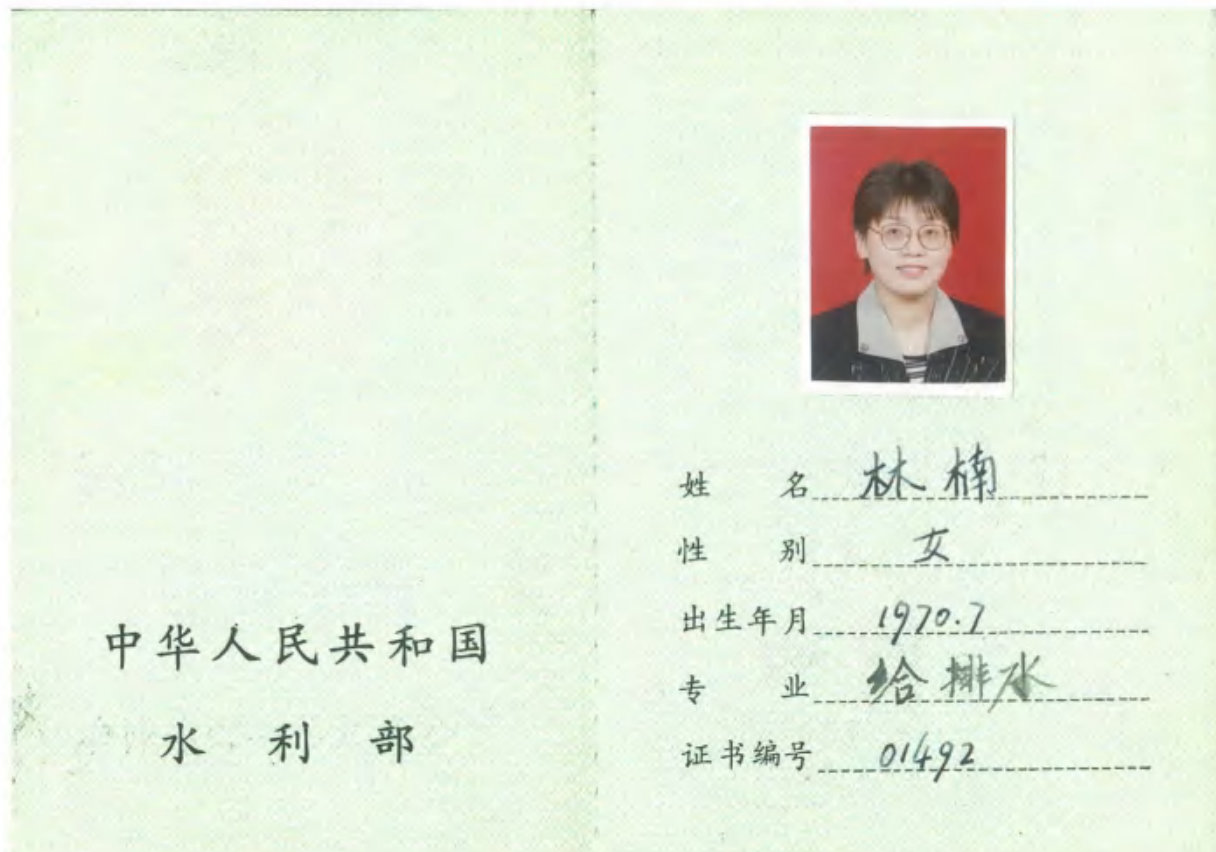 中华人民共和国
水利部
姓名 林楠
性别 女
出生年月 1970.7
专业 给排水
证书编号 01492